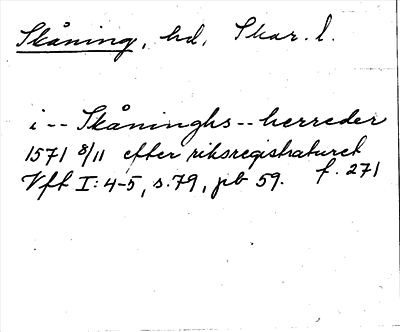 Skåning, hd, Skar. l.
i -- Skåninghs -- herreder
1571 8/11 efter riksregistraturet
f. 271
Vft I: 4-5, s. 79, jb 59.